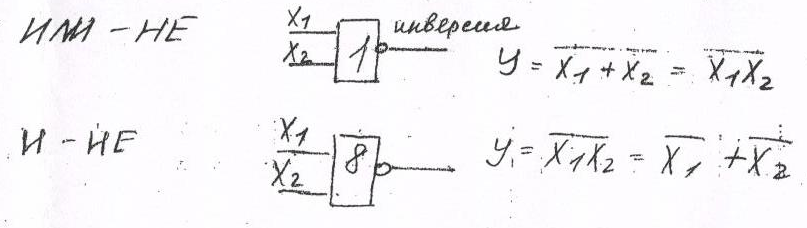 ИЛИ - НЕ X1 X2 1 инверсия y = \overline{X1 + X2} = \overline{X1X2}
И - НЕ X1 X2 8 y = \overline{X1X2} = \overline{X1} + \overline{X2}